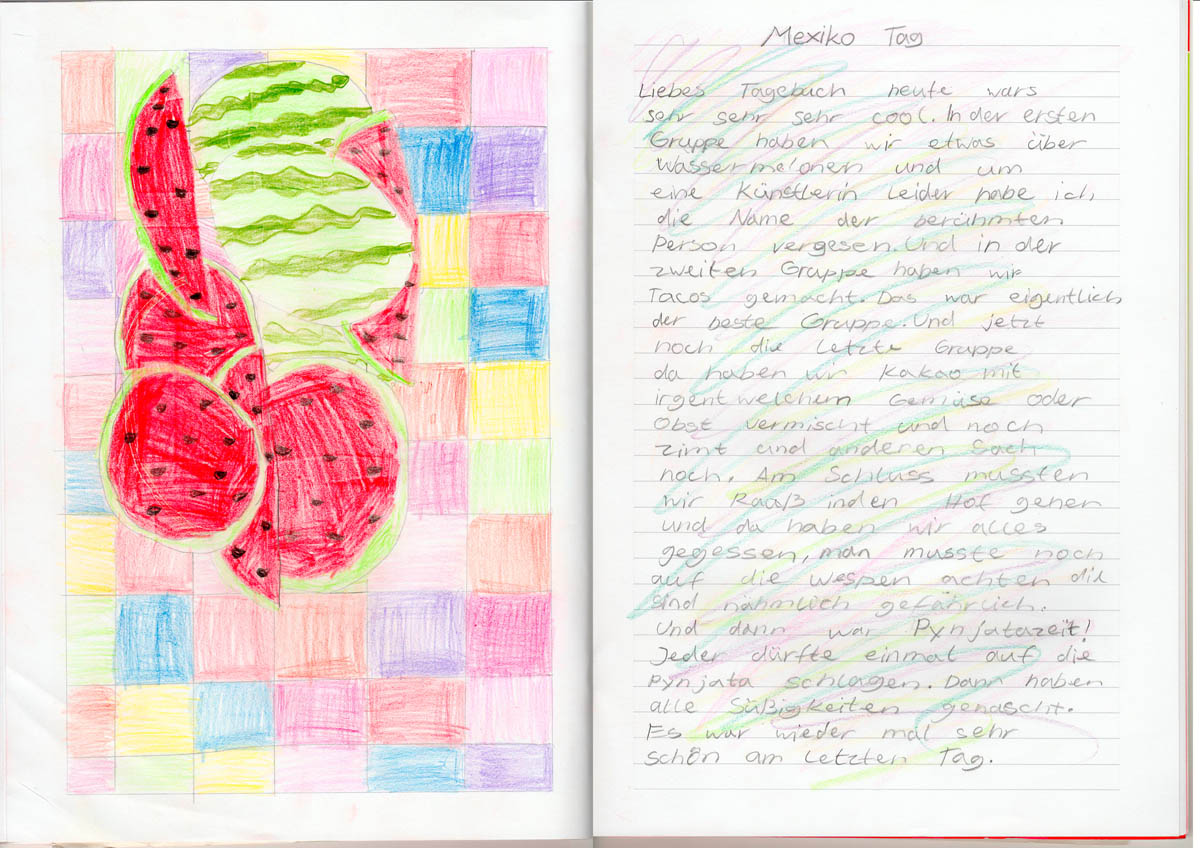 Mexiko Tag
Liebes Tagebuch heute wars
sehr sehr sehr cool. In der ersten
Gruppe haben wir etwas über
Wassermelonen und um
eine Künstlerin leider habe ich
die Name der berühmten
Person vergesen. Und in der
zweiten Gruppe haben wir
Tacos gemacht. Das war eigentlich
der beste Gruppe. Und jetzt
noch die letzte Gruppe
da haben wir Kakao mit
irgent welchem Gemüse oder
Obst vermischt und noch
zimt und anderen Sach
noch. Am Schluss mussten
wir Raaß in den Hof gehen
und da haben wir alles
gegessen, man musste noch
auf die Wespen achten die
sind nähmlich gefährlich.
Und dann war Pynjatazeit!
Jeder dürfte einmat auf die
Pynjata schlagen. Dann haben
alle Süßigkeiten genascht.
Es war wieder mal sehr
schön am letzten Tag.